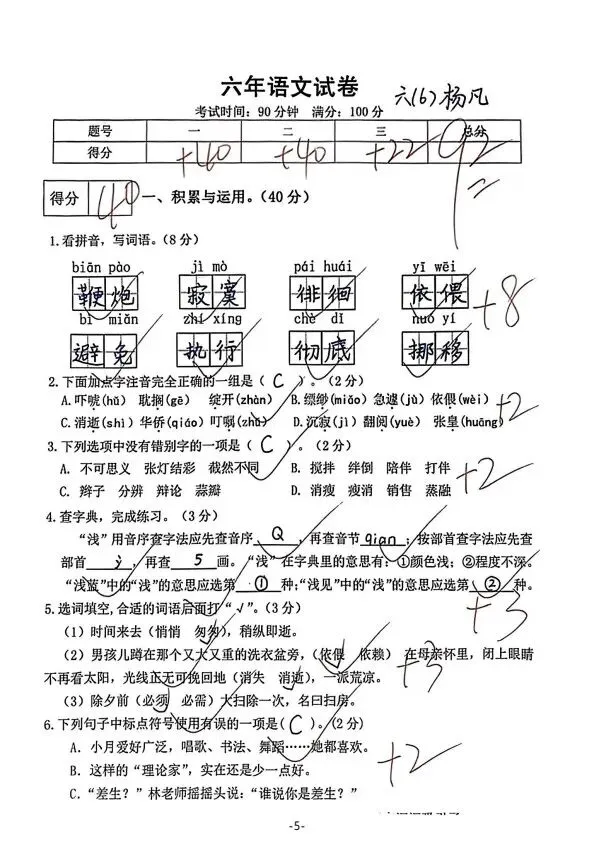 六年语文试卷
六(6) 杨凡
考试时间：90分钟 满分：100分
题号 一 二 三 总分
得分 +40 +40 +22 92
得分 40 一、积累与运用。(40分)
1.看拼音，写词语。(8分)
biān pào jì mò pái huái yī wēi
鞭炮 寂寞 徘徊 依偎 +8
bì miǎn zhí xíng chè dǐ nuó yí
避免 执行 彻底 挪移
2.下面加点字注音完全正确的一组是( C )。(2分)
A.吓唬(hǔ) 耽搁(gē) 绽开(zhàn) B.缥缈(miǎo) 急遽(jù) 依偎(wèi) +2
C.消逝(shì) 华侨(qiáo) 叮嘱(zhǔ) D.沉寂(jì) 翻阅(yuè) 张皇(huāng)
3.下列选项中没有错别字的一项是( C )。(2分)
A. 不可思义 张灯结彩 截然不同 B. 搅拌 绊倒 陪伴 打伴 +2
C. 辫子 分辨 辩论 蒜瓣 D. 消瘦 瘦消 销售 蒸融
4.查字典，完成练习。(3分)
“浅”用音序查字法应先查音序 Q ，再查音节 qian ；按部首查字法应先查
部首 氵 ，再查 5 画。“浅”在字典里的意思有：①颜色浅；②程度不深。
“浅蓝”中的“浅”的意思应选第 ① 种；“浅见”中的“浅”的意思应选第 ② 种。
+3
5.选词填空，合适的词语后面打“√”。(3分)
(1) 时间来去（悄悄 匆匆√），稍纵即逝。
(2) 男孩儿蹲在那个又大又重的洗衣盆旁，（依偎√ 依赖）在母亲怀里，闭上眼睛 +3
不再看太阳，光线正无可挽回地（消失 消逝√），一派荒凉。
(3) 除夕前（必须√ 必需）大扫除一次，名曰扫房。
6.下列句子中标点符号使用有误的一项是( C )。(2分)
A. 小月爱好广泛，唱歌、书法、舞蹈……她都喜欢。 +2
B. 这样的“理论家”，实在还是少一点好。
C.“差生？”林老师摇摇头说：“谁说你是差生？”
-5-